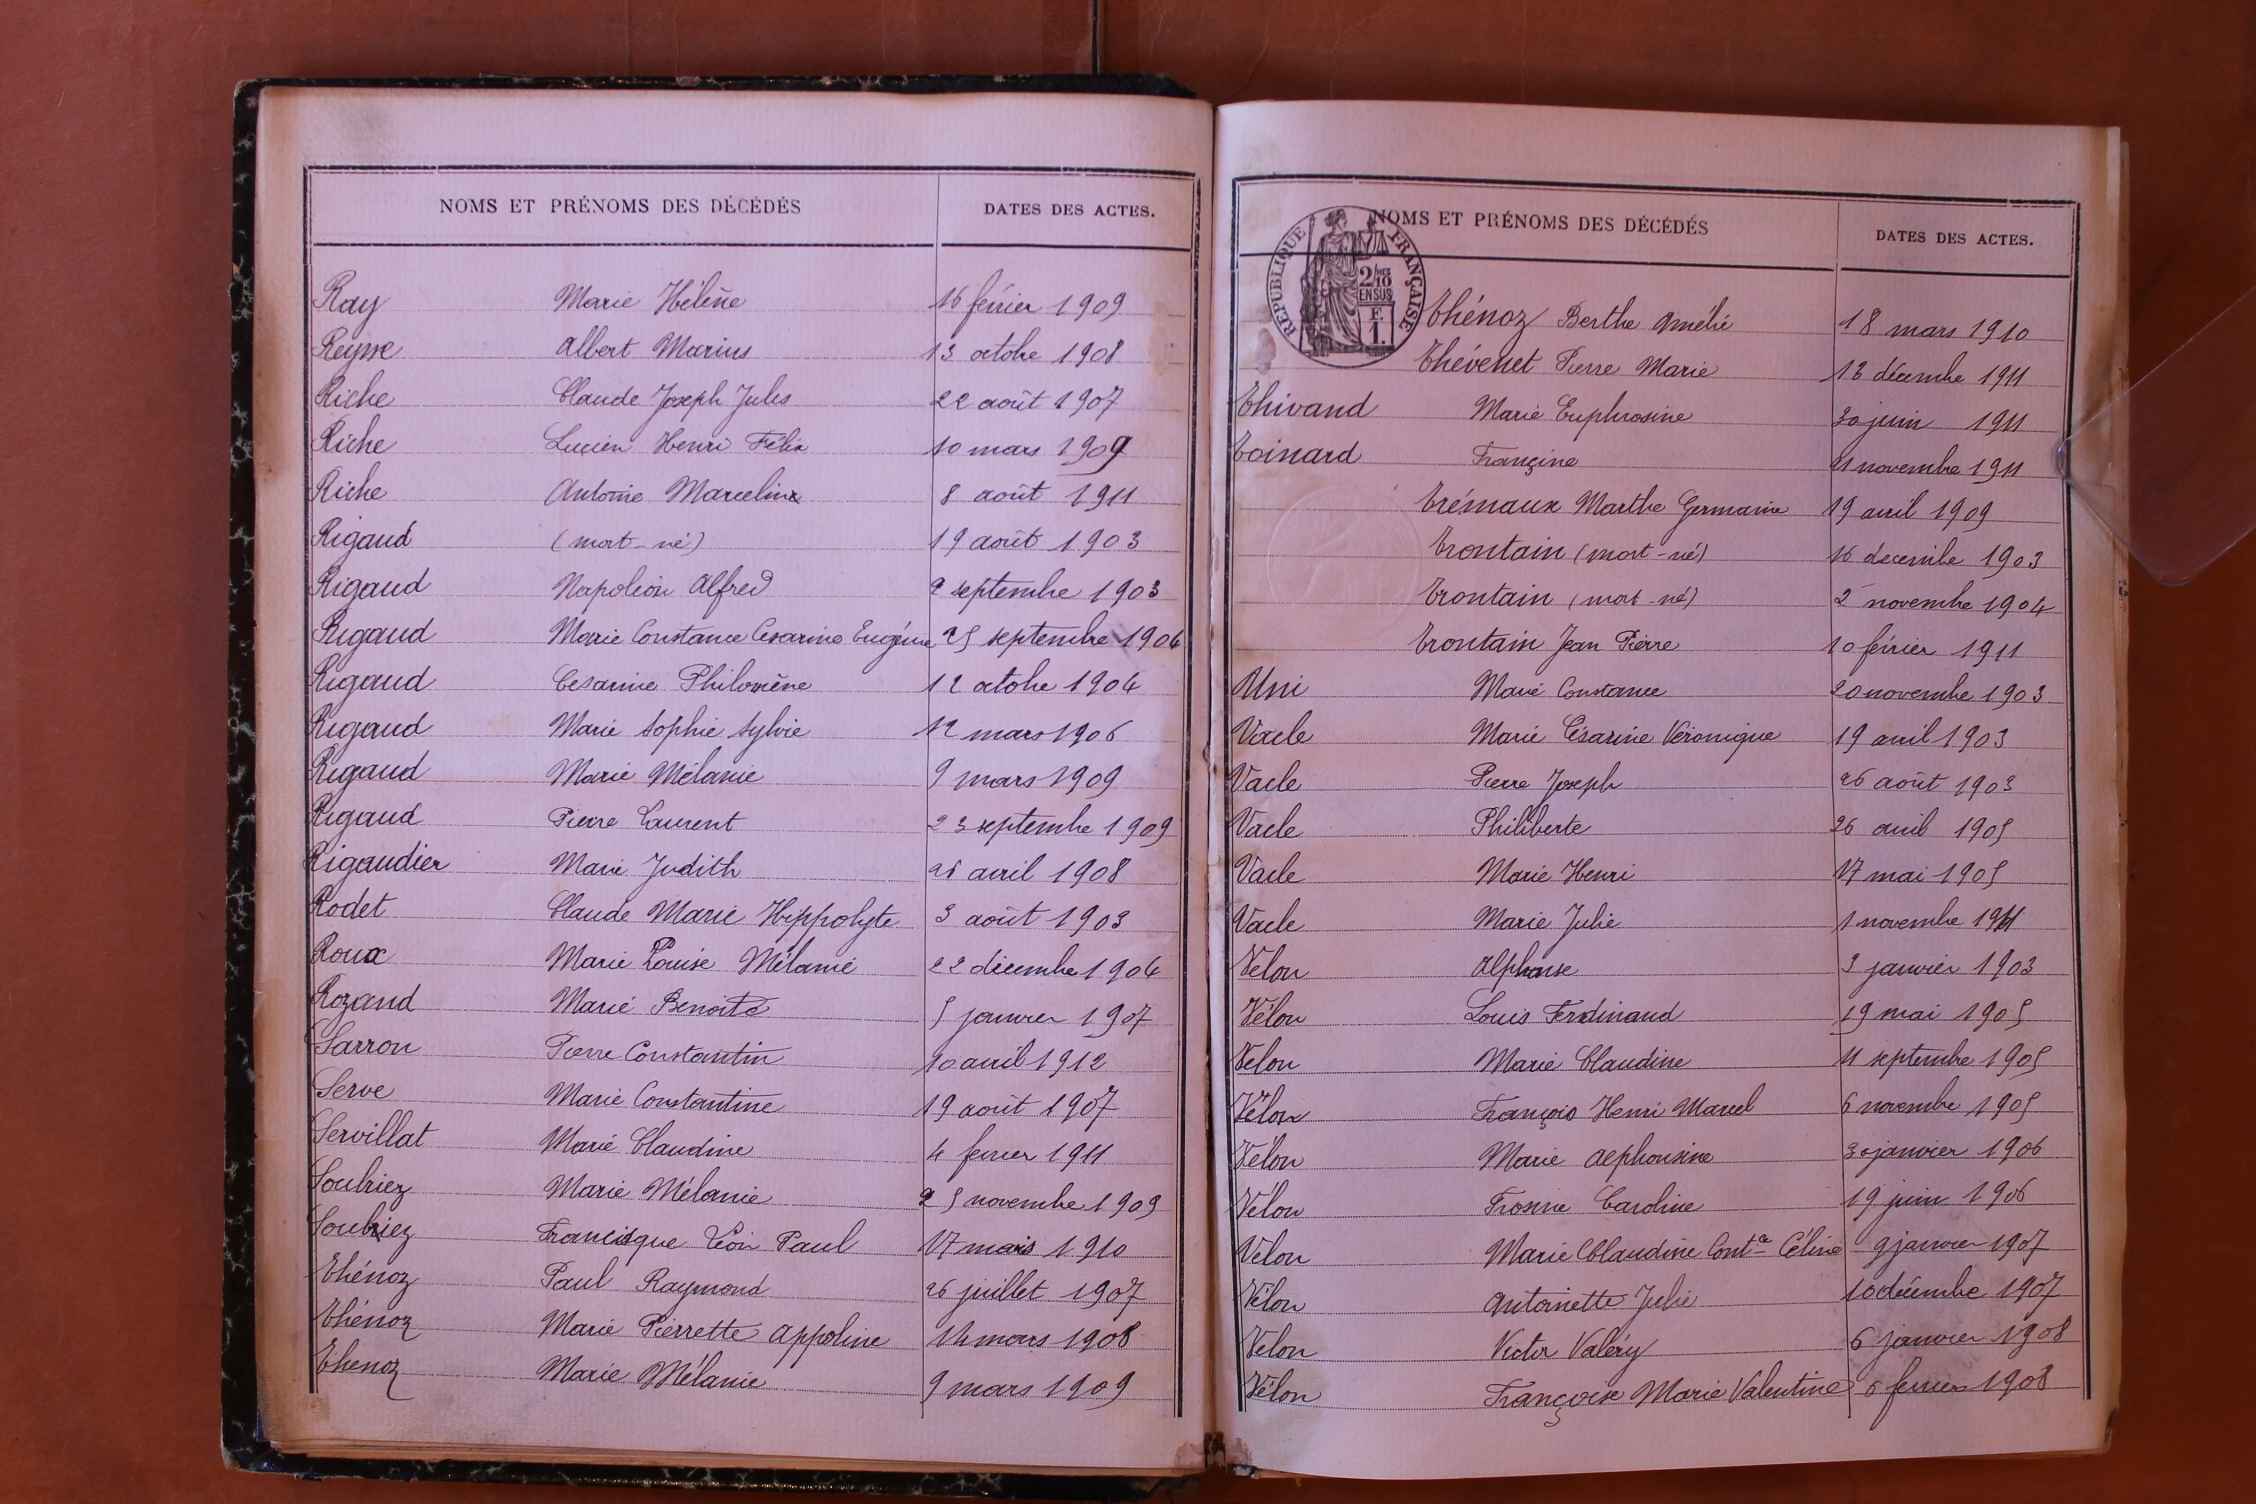 NOMS ET PRÉNOMS DES DÉCÉDÉS DATES DES ACTES.
Ray Marie Hélène 16 février 1909
Reysse Albert Marius 13 octobre 1908
Riche Claude Joseph Jules 22 août 1907
Riche Lucien Henri Félix 10 mars 1909
Riche Antoine Marcelin 8 août 1911
Rigaud (mort-né) 19 août 1903
Rigaud Napoléon Alfred 2 septembre 1903
Rigaud Marie Constance Césarine Eugénie 25 septembre 1904
Rigaud Césarine Philomène 12 octobre 1904
Rigaud Marie Sophie Sylvie 12 mars 1906
Rigaud Marie Mélanie 9 mars 1909
Rigaud Pierre Laurent 23 septembre 1909
Rigaudier Marie Judith avril 1908
Rodet Claude Marie Hippolyte 3 août 1903
Roux Marie Louise Mélanie 22 décembre 1904
Rozand Marie Benoite 5 janvier 1907
Sarron Pierre Constantin 10 avril 1912
Serve Marie Constantine 19 août 1907
Servillat Marie Claudine 4 février 1911
Soubriez Marie Mélanie 25 novembre 1909
Soubriez Francisque Léon Paul 17 mars 1910
Thénoz Paul Raymond 26 juillet 1907
Thénoz Marie Pierrette Appoline 14 mars 1908
Thénoz Marie Mélanie 9 mars 1909
NOMS ET PRÉNOMS DES DÉCÉDÉS DATES DES ACTES.
RÉPUBLIQUE FRANÇAISE
2/10 EN SUS
F. 1.
Thénoz Berthe Amélie 18 mars 1910
Thévenet Pierre Marie décembre 1911
Thivand Marie Euphrosine 30 juin 1911
Toinard Françine 11 novembre 1911
Trémaux Marthe Germaine 19 avril 1909
Trontain (mort-né) 16 décembre 1903
Trontain (mort-né) 2 novembre 1904
Trontain Jean Pierre 10 février 1911
Uni Marie Constance 20 novembre 1903
Vacle Marie Césarine Véronique 19 avril 1903
Vacle Pierre Joseph 26 août 1903
Vacle Philiberte 26 avril 1905
Vacle Marie Henri 17 mai 1905
Vacle Marie Julie 1 novembre 1911
Vélon Alphonse 3 janvier 1903
Vélon Louis Ferdinand 19 mai 1905
Vélon Marie Claudine 11 septembre 1905
Vélon François Henri Marcel 6 novembre 1905
Vélon Marie Alphonsine 30 janvier 1906
Vélon Frosine Caroline 19 juin 1906
Vélon Marie Claudine Cont.ce Céline 9 janvier 1907
Vélon Antoinette Julie 10 décembre 1907
Vélon Victor Valéry 6 janvier 1908
Vélon Françoise Marie Valentine 6 février 1908